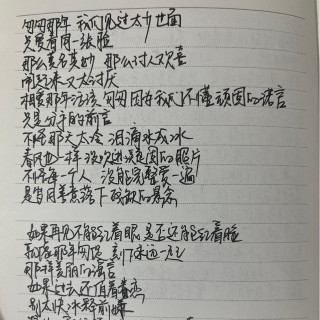 匆匆那年 我们见过太少世面
只爱看同一张脸
那么莫名其妙 那么讨人欢喜
闹起来又太讨厌
相爱那年活该匆匆因为我们不懂顽固的诺言
只是分手的前言
不怪那天太冷 泪滴水成冰
春风也一样没 进 的照片
不怪每一个人 没能完整爱一遍
是岁月善意落下残缺的悬念
如果再见不能红着眼 是否还能红着脸
就像那年匆促 刻下永远一起
那样美丽的谣言
如果过去还值得眷恋
别太快冰释前嫌